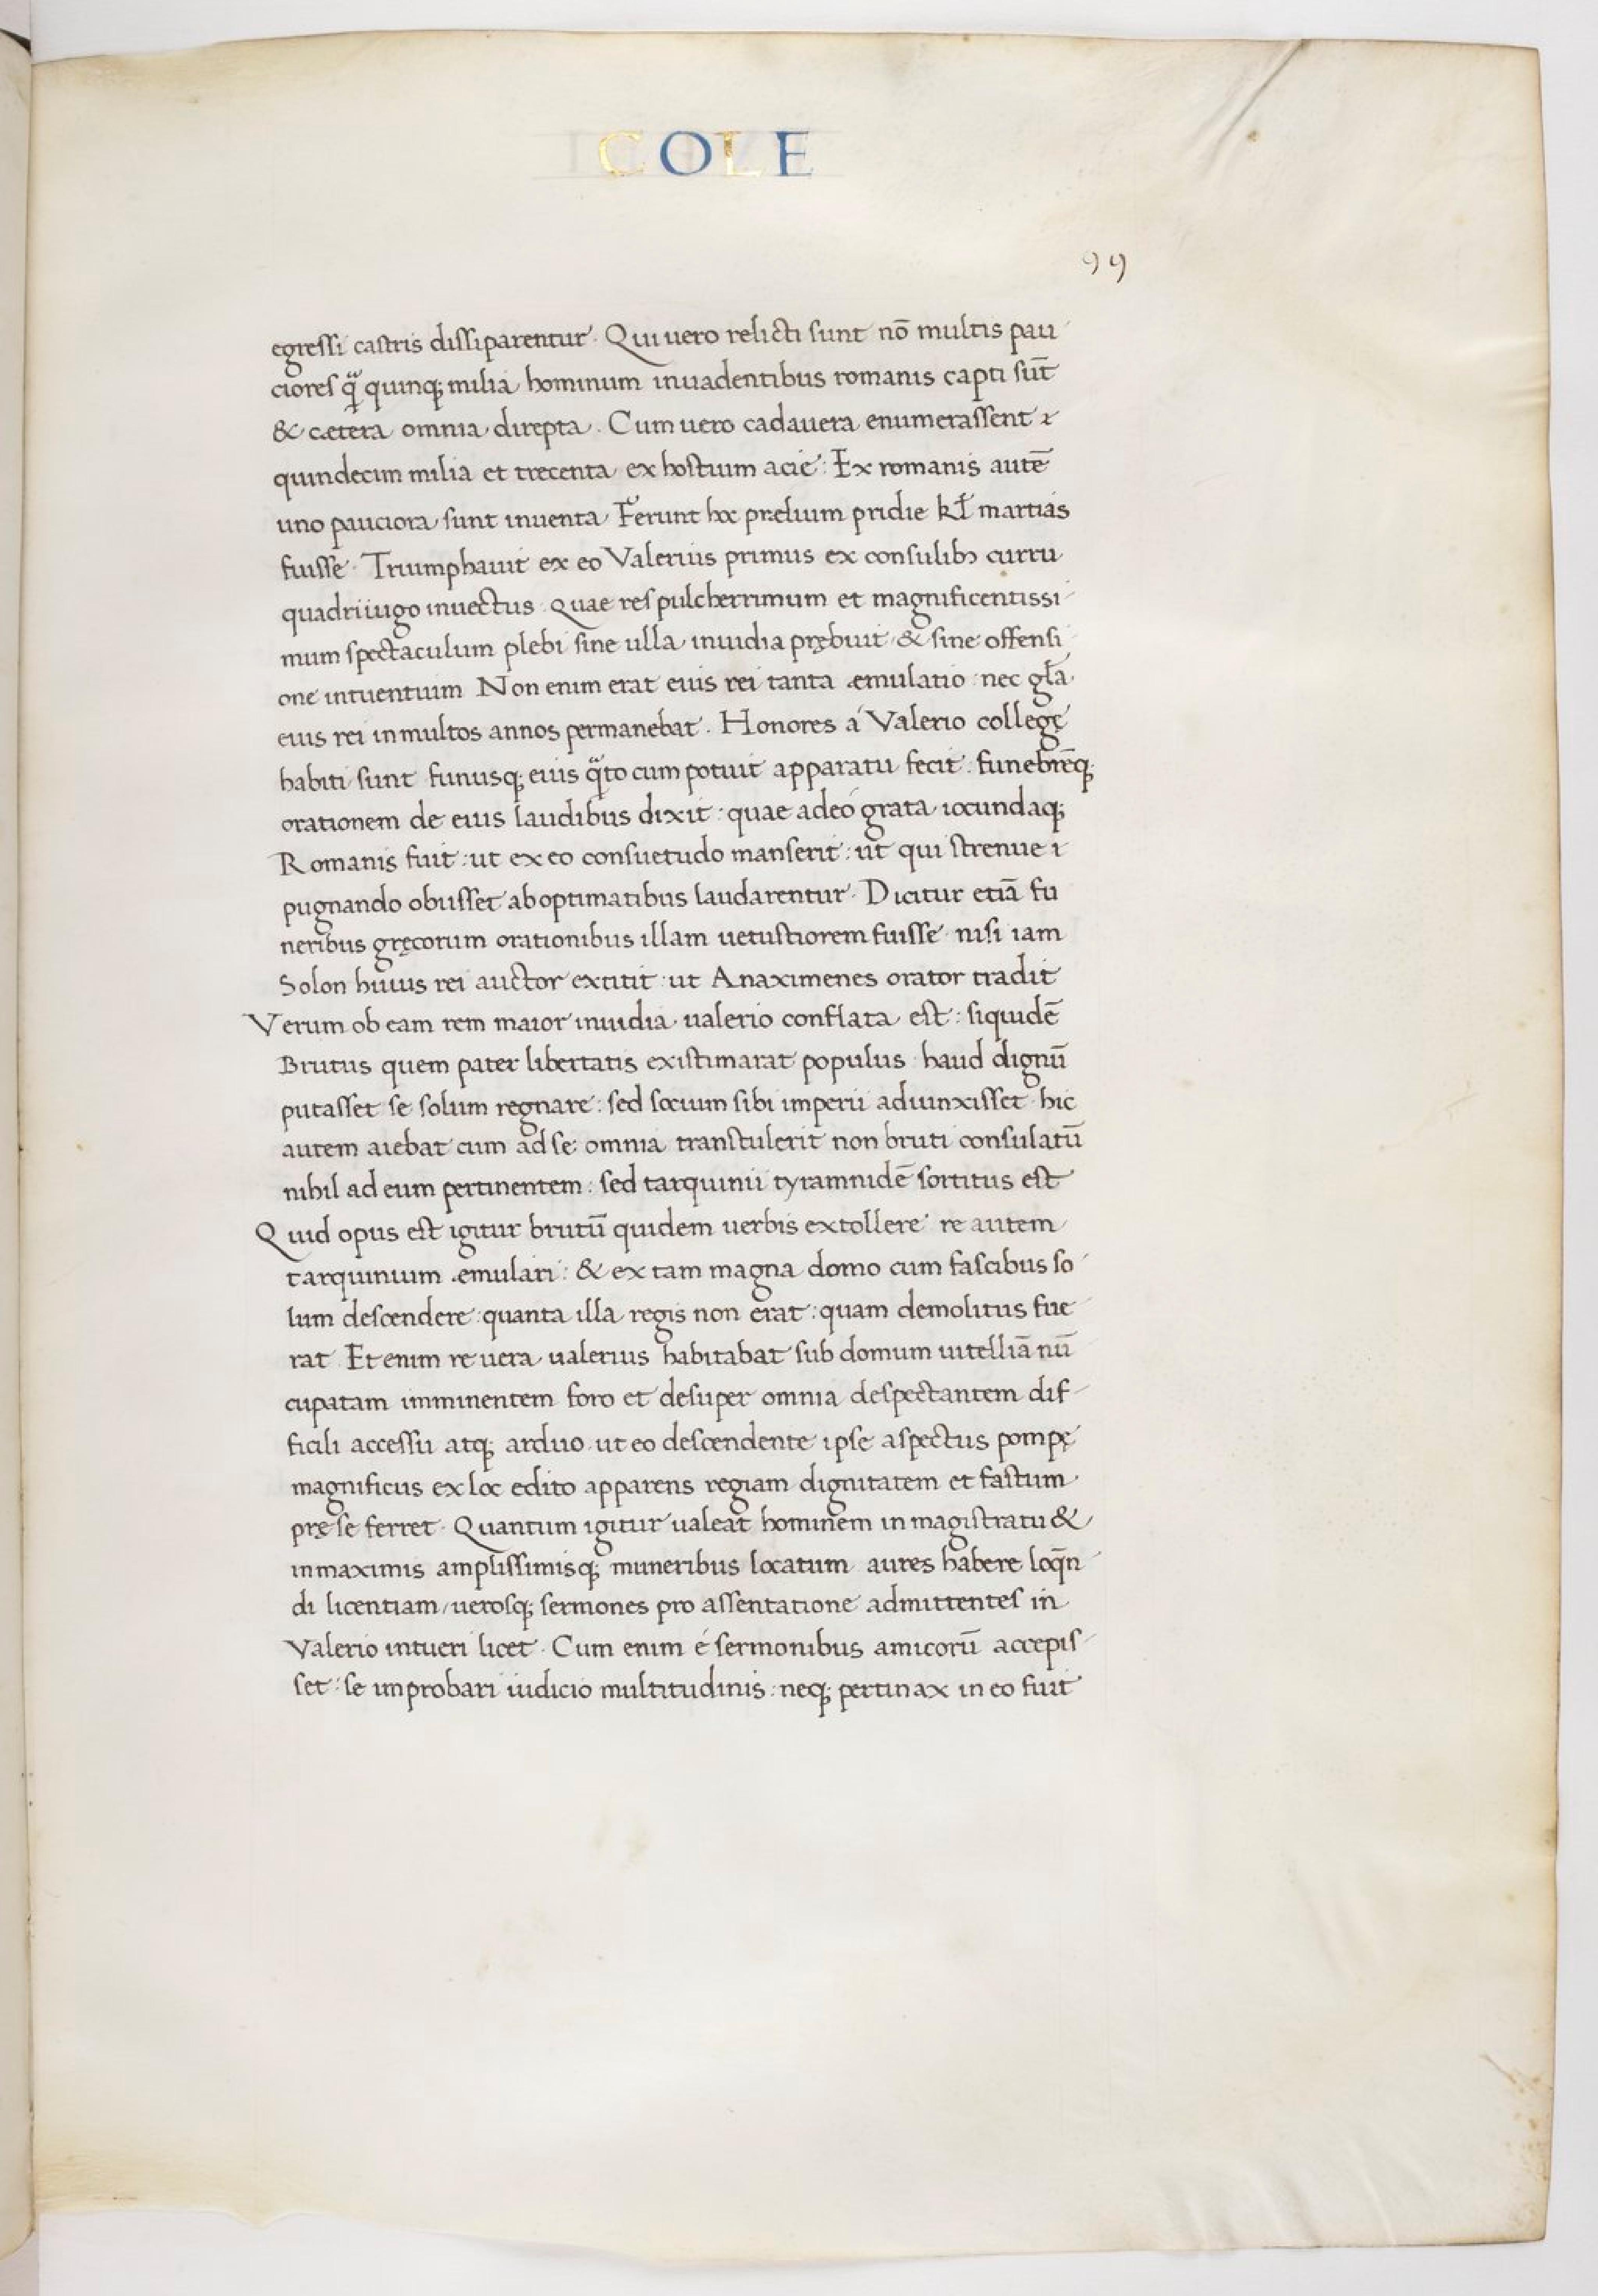 COLE
99
egressi castris dissiparentur. Qui uero relicti sunt nō multis pau
ciores q̄ quinq; milia hominum inuadentibus romanis capti sūt
& cætera omnia direpta. Cum uero cadauera enumerassent
quindecim milia et trecenta ex hostium acie: Ex romanis autē
uno pauciora sunt inuenta Ferunt hoc prælium pridie kł martias
fuisse. Triumphauit ex eo Valerius primus ex consulibꝫ curru
quadriiugo inuectus. Quae res pulcherrimum et magnificentissi
mum spectaculum plebi sine ulla inuidia prębuit & sine offensi
one intuentium Non enim erat eius rei tanta æmulatio: nec gła
eius rei in multos annos permanebat. Honores á Valerio collegę
habiti sunt funusq; eius q̄to cum potuit apparatu fecit: funebrēq;
orationem de eius laudibus dixit: quae adeó grata iocundaq;
Romanis fuit: ut ex eo consuetudo manserit: ut qui strenue
pugnando obiisset ab optimatibus laudarentur. Dicitur etiā fu
neribus gręcorum orationibus illam uetustiorem fuisse nisi iam
Solon huius rei auctor extitit: ut Anaximenes orator tradit
Verum ob eam rem maior inuidia ualerio conflata est: siquidē
Brutus quem pater libertatis existimarat populus haud dignū
putasset se solum regnare: sed socium sibi imperii adiunxisset hic
autem aiebat cum ad se omnia transtulerit non bruti consulatū
nihil ad eum pertinentem: sed tarquinii tyramnidē sortitus est
Quid opus est igitur brutū quidem uerbis extollere re autem
tarquinium æmulari: & ex tam magna domo cum fascibus so
lum descendere: quanta illa regis non erat: quam demolitus fue
rat Et enim re uera ualerius habitabat sub domum uitelliā nū
cupatam imminentem foro et desuper omnia despectantem dif
ficili accessu atq; arduo ut eo descendente ipse aspectus pompę
magnificus ex loc edito apparens regiam dignitatem et fastum
prę se ferret. Quantum igitur ualeat hominem in magistratu &
in maximis amplissimisq; muneribus locatum aures habere loq̄n
di licentiam, uerosq; sermones pro assentatione admittentes in
Valerio intueri licet. Cum enim é sermonibus amicorū accepis
set: se improbari iudicio multitudinis: neq; pertinax in eo fuit